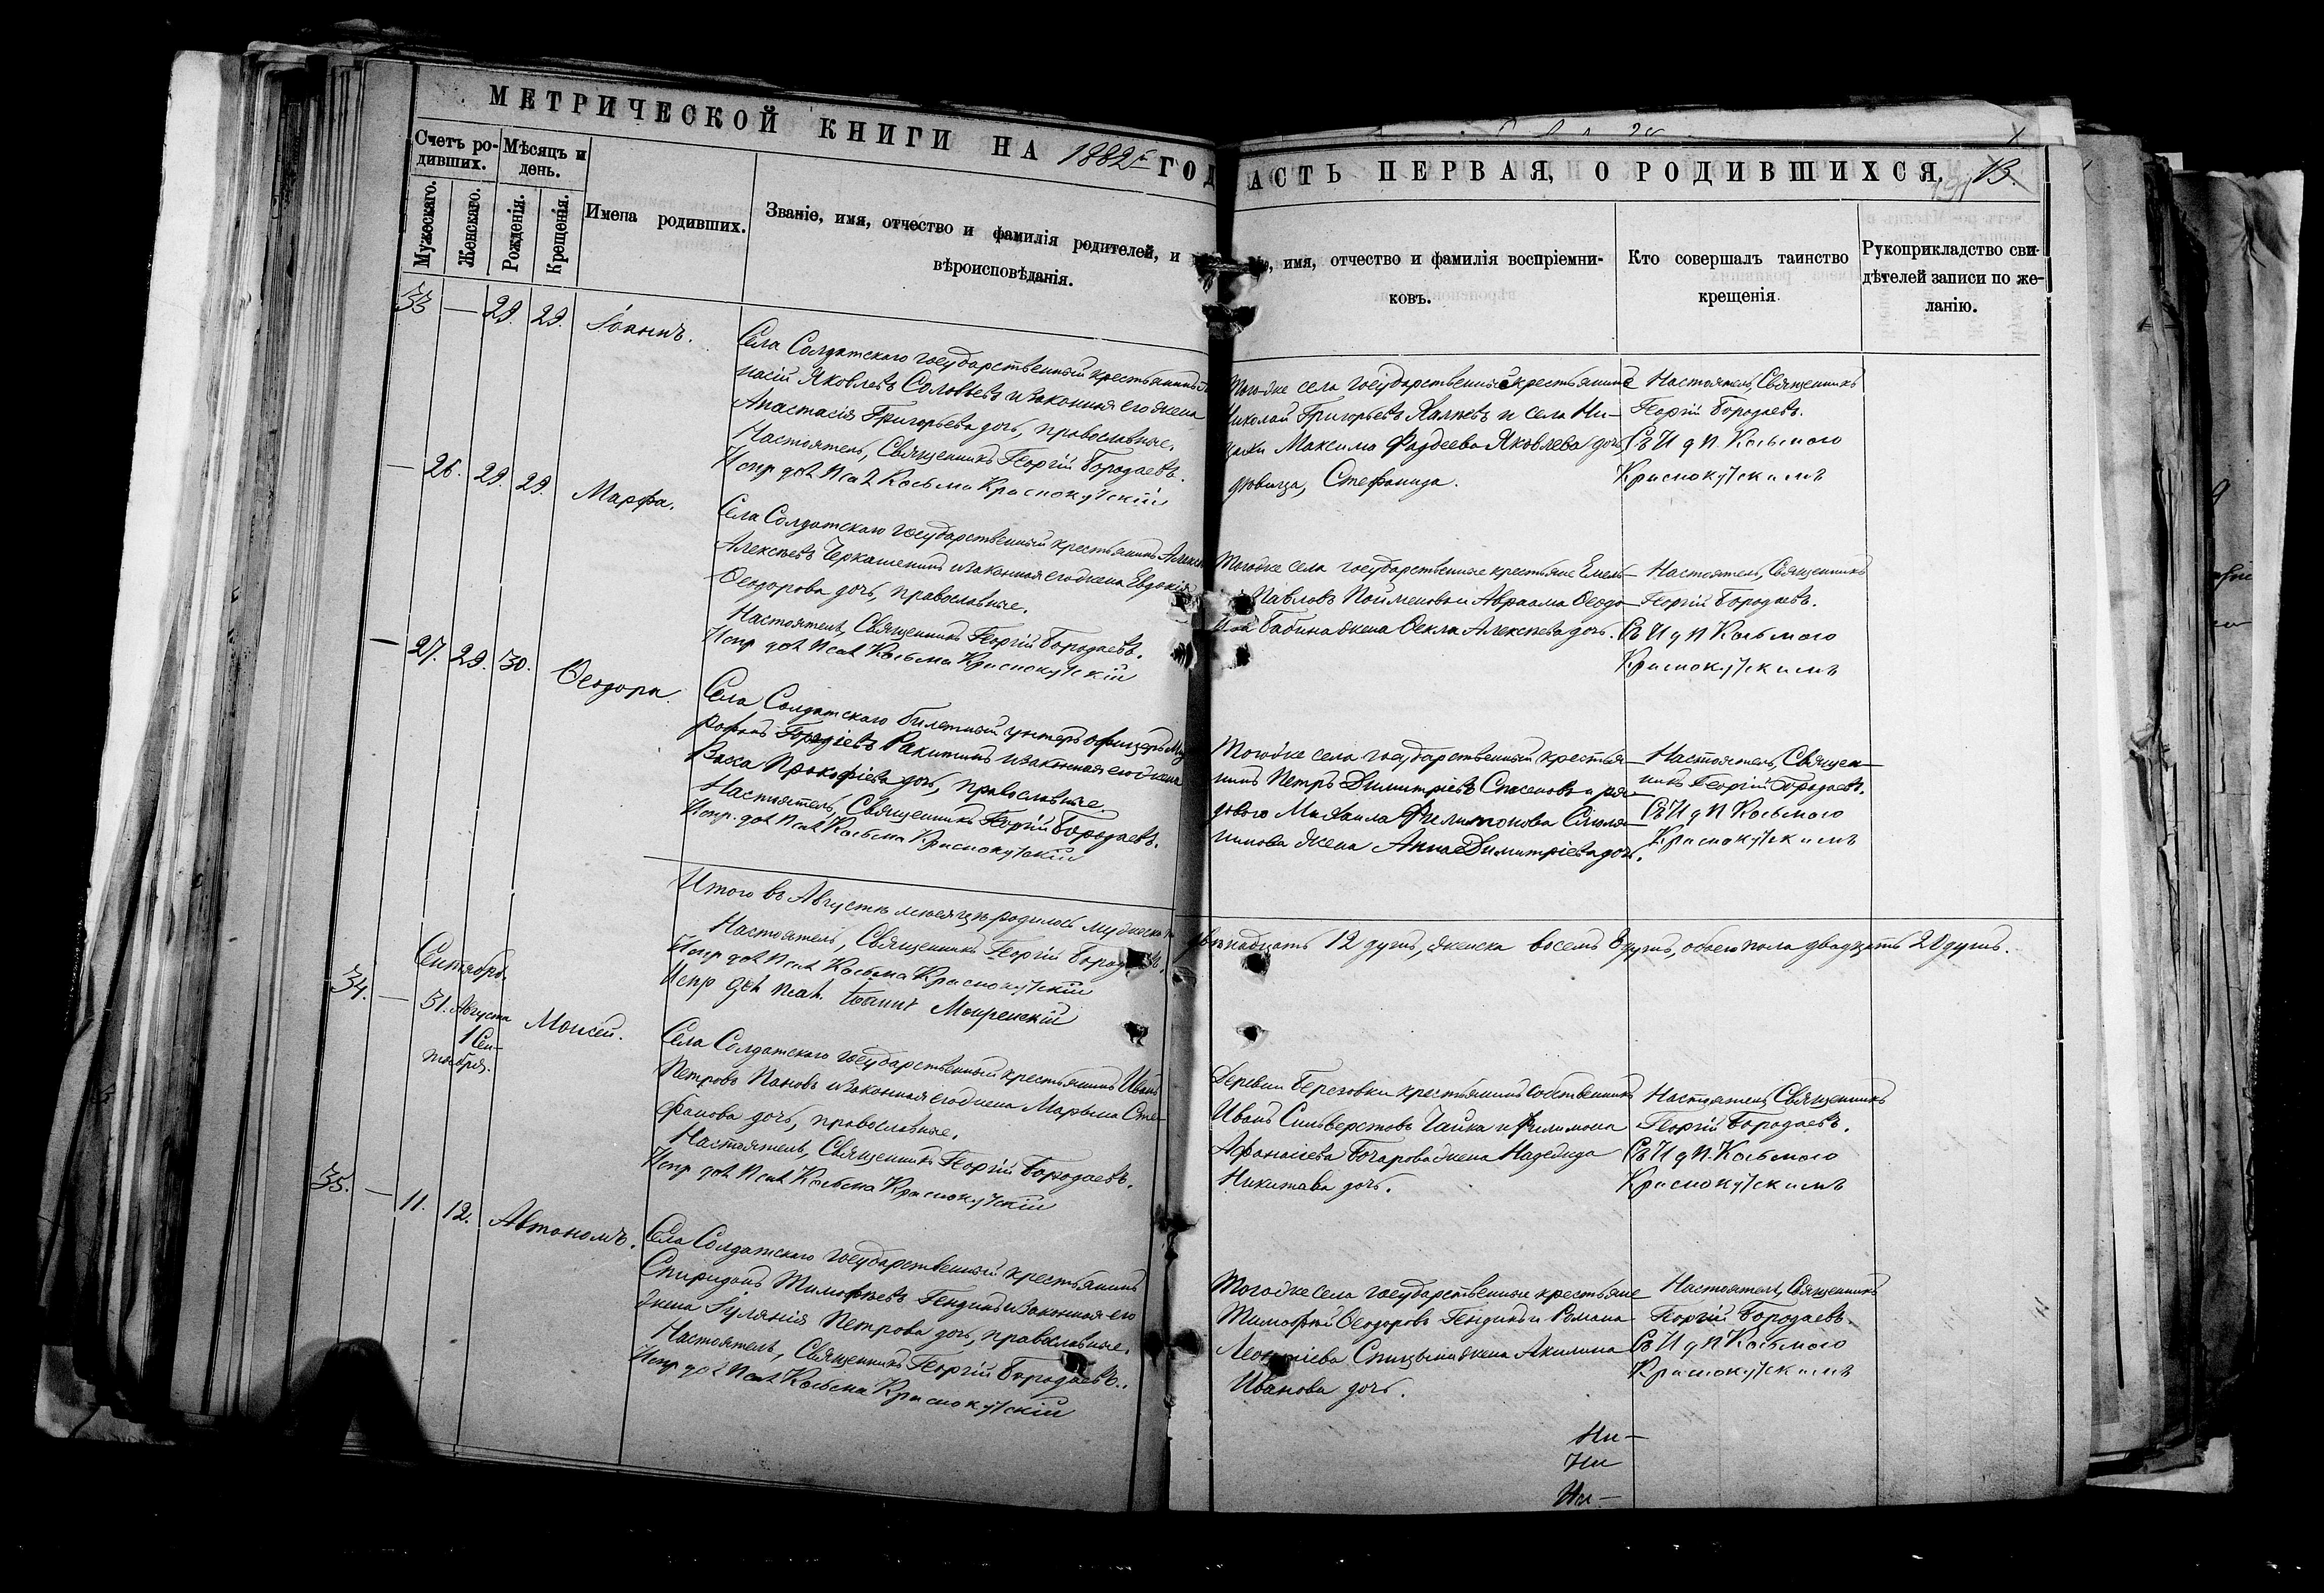 МЕТРИЧЕСКОЙ КНИГИ НА 1882й ГОД
АСТЬ ПЕРВАЯ, О РОДИВШИХСЯ. 13.
Счетъ ро-
дившихъ.
Мѣсяцъ и
день.
Мужескаго.
Женскаго.
Рожденія.
Крещенія.
Имена родившихъ.
Званіе, имя, отчество и фамилія родителей, и
вѣроисповѣданія.
имя, отчество и фамилія воспріемни-
ковъ.
Кто совершалъ таинство
крещенія.
Рукоприкладство сви-
дѣтелей записи по же-
ланію.
33 — 29. 29. Іоаннъ.
Села Солдатскаго государственный крестьянинъ
насій Яковлевъ Соловьевъ и законная его жена
Анастасія Григорьева дочь, православные.
Настоятель, Священникъ Георгій Бородаевъ.
Испр дол Псал Косьма Краснокутскій
Тогоже села государственный крестьянинъ
Николай Григорьевъ и села Ни-
Максима Фаддеева Яковлева дочь
дѣвица, Стефанида.
Настоятель, Священникъ
Георгій Бородаевъ.
Съ И д П. Косьмою
Краснокутскимъ
— 26. 29. 29. Марфа.
Села Солдатскаго государственный крестьянинъ
Алексѣевъ Черкашенинъ и законная его жена Евдокія
Ѳеодорова дочь, православные.
Настоятель, Священникъ Георгій Бородаевъ.
Испр дол Псал Косьма Краснокутскій
Тогоже села государственные крестьяне Емель-
Павловъ Пойменовъ и Авраама Ѳеодо-
Бабина жена Ѳекла Алексѣева дочь.
Настоятель, Священникъ
Георгій Бородаевъ.
Съ И д П Косьмою
Краснокутскимъ
— 27. 29. 30. Ѳеодора.
Села Солдатскаго билетный унтеръ офицеръ Мит
рофанъ Ракитинъ и законная его жена
Васса Прокофіева дочь, православные.
Настоятель, Священникъ Георгій Бородаевъ.
Испр. дол Псал Косьма Краснокутскій
Тогоже села государственный крестья-
нинъ Петръ Димитріевъ и ря-
доваго Михаила Филимонова
жена Анна Димитріева дочь.
Настоятель, Священ-
никъ Георгій Бородаевъ.
Съ И д П Косьмою
Краснокутскимъ
Итого въ Августѣ мѣсяцѣ родилось мужеска
двѣнадцать 12 душъ, женска восемь 8 душъ, обоего пола двадцать 20 душъ.
Настоятель, Священникъ Георгій Бородаевъ.
Испр дол Псал Косьма Краснокутскій
Испр дол псал. Іоаннъ
Сентябрь.
34. — 31. Августа
1 Сен-
тября.
Моисей.
Села Солдатскаго государственный крестьянинъ Иванъ
Петровъ Пановъ и законная его жена Марѳа Сте-
фанова дочь, православные.
Настоятель, Священникъ Георгій Бородаевъ.
Испр дол Псал Косьма Краснокутскій
Деревни Березовки крестьянинъ собственникъ
Иванъ Сильверстовъ Чайка и Филимона
Афанасіева Бочарова жена Надежда
Никитова дочь.
Настоятель, Священникъ
Георгій Бородаевъ.
Съ И д П. Косьмою
Краснокутскимъ
35. — 11. 12. Автономъ.
Села Солдатскаго государственный крестьянинъ
Спиридонъ Тимофѣевъ Гендинъ и законная его
жена Іуліанія Петрова дочь, православные.
Настоятель, Священникъ Георгій Бородаевъ.
Испр дол Псал Косьма Краснокутскій
Тогоже села государственные крестьяне
Тимофей Ѳеодоровъ Гендинъ и Романа
Леонтіева Спицына жена Акилина
Иванова дочь.
Настоятель, Священникъ
Георгій Бородаевъ.
Съ И д П Косьмою
Краснокутскимъ
Ни-
Ни
Ни-